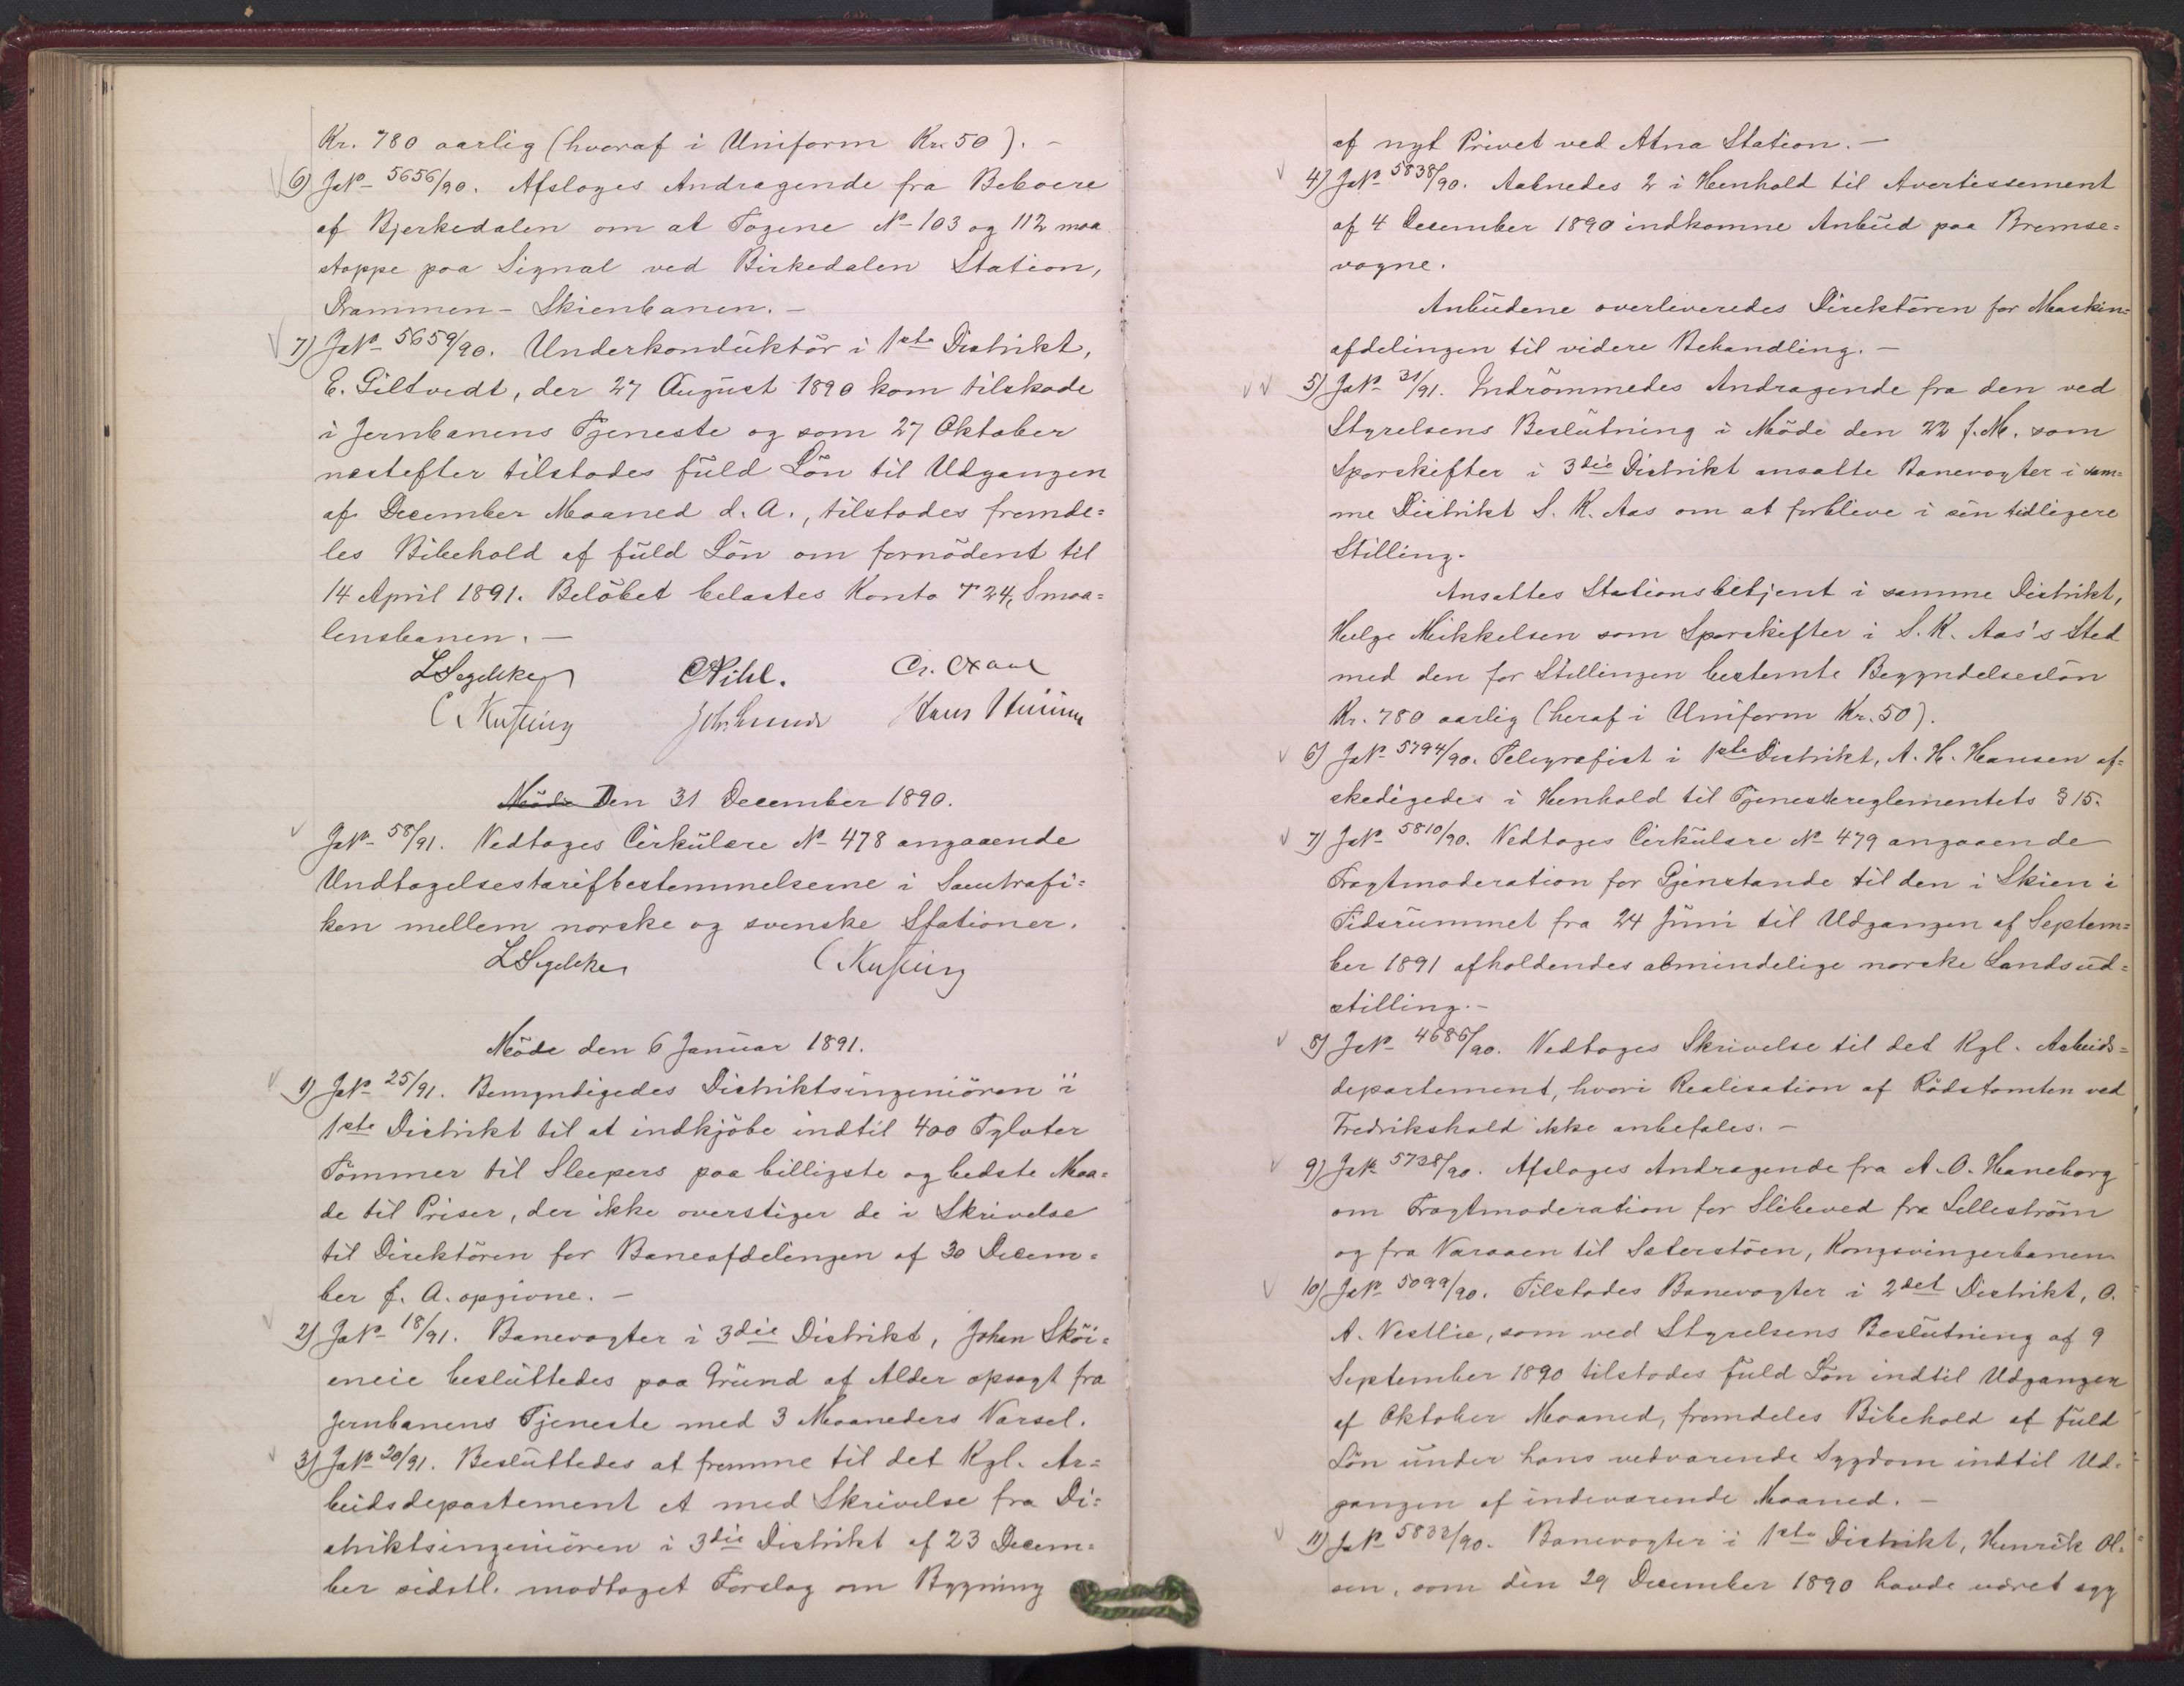 Kr. 780 aarlig (hvoraf i Uniform Kr. 50). -
6) J№ 5656/90. Afsloges Andragende fra Beboere
af Bjerkedalen om at Togene № 103 og 112 maa
stoppe paa Signal ved Birkedalen Station,
Drammen - Skienbanen. -
7) J№ 5659/90. Underkonduktör i 1ste Distrikt,
E. Giltvedt, der 27 August 1890 kom tilskade
i Jernbanens Tjeneste og som 27 Oktober
næstefter tilstodes fuld Lön til Udgangen
af December Maaned d. A., tilstodes fremde=
les Bibehold af fuld Lön om fornödent til
14 April 1891. Belöbet belastes Konto T 24, Smaa=
lensbanen. -
LSegelcke CPihl.
Den 31 December 1890.
J№ 58/91. Vedtoges Cirkulære № 478 angaaende
Undtagelsestarifbestemmelserne i Samtrafi=
ken mellem norske og svenske Stationer.
LSegelcke
Möde den 6 Januar 1891.
1) J№ 25/91. Bemyndigedes Distriktsingeniören i
1ste Distrikt til at indkjöbe indtil 400 Tylvter
Tömmer til Sleepers paa billigste og bedste Maa=
de til Priser, der ikke overstiger de i Skrivelse
til Direktören for Baneafdelingen af 30 Decem=
ber f. A. opgivne. -
2) J№ 18/91. Banevogter i 3die Distrikt, Johan Sköi=
eneie besluttedes paa Grund af Alder opsagt fra
Jernbanens Tjeneste med 3 Maaneders Varsel.
3) J№ 20/91. Besluttedes at fremme til det Kgl. Ar=
beidsdepartement et med Skrivelse fra Di=
striktsingeniören i 3die Distrikt af 23 Decem=
ber sidstl. modtaget Forslag om Bygning
af nyt Privet ved Atna Station. -
4) J№ 5838/90. Aabnedes 2 i Henhold til Avertissement
af 4 December 1890 indkomne Anbud paa Bremse=
vogne.
Anbudene overleveredes Direktören for Maskin=
afdelingen til videre Behandling. -
5) J№ 31/91. Indrömmedes Andragende fra den ved
Styrelsens Beslutning i Möde den 22 f. M. som
Sporskifter i 3die Distrikt ansatte Banevogter i sam=
me Distrikt S. K. Aas om at forblive i sin tidligere
Stilling.
Ansattes Stationsbetjent i samme Distrikt,
Helge Mikkelsen som Sporskifter i S. K. Aas's Sted
med den for Stillingen bestemte Begyndelseslön
Kr. 780 aarlig (heraf i Uniform Kr. 50).
6) J№ 5794/90. Telegrafist i 1ste Distrikt, A. H. Hansen af=
skedigedes i Henhold til Tjenestereglementets § 15.
7) J№ 5810/90. Vedtoges Cirkulære № 479 angaaende
Fragtmoderation for Gjenstande til den i Skien i
Tidsrummet fra 24 Juni til Udgangen af Septem=
ber 1891 afholdendes almindelige norske Landsud=
stilling. -
8) J№ 4686/90. Vedtoges Skrivelse til det Kgl. Arbeids=
departement, hvori Realisation af Rödstomten ved
Fredrikshald ikke anbefales. -
9) J№ 5728/90. Afsloges Andragende fra A. O. Haneborg
om Fragtmoderation for Slibeved fra Lilleström
og fra Varaaen til Sæterstöen, Kongsvingerbanen.
10) J№ 5099/90. Tilstodes Banevogter i 2det Distrikt, O.
A. Vestlie, som ved Styrelsens Beslutning af 9
September 1890 tilstodes fuld Lön indtil Udgangen
af Oktober Maaned, fremdeles Bibehold af fuld
Lön under hans vedvarende Sygdom indtil Ud=
gangen af indeværende Maaned. -
11) J№ 5832/90. Banevogter i 1ste Distrikt, Henrik Ol=
sen, som den 29 December 1890 havde været syg